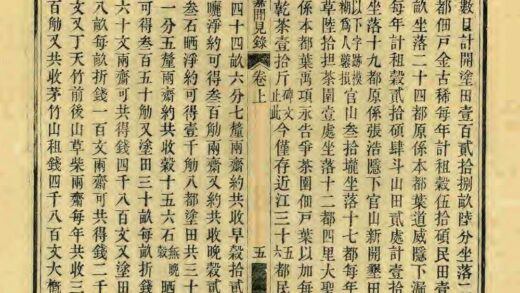 數㫷計開塗田壹百貳拾捌畝陸分坐落二
都佃戶金古稀每年計租穀伍拾碩民田壹
畝坐落二十四都原係本都葉道威隱下漏
每年計租穀貳拾碩肆斗山田貳處計壹拾
坐落十九都原係張浩隱下官山新開墾田
以下字跡損糊爲人鑿損官山叁拾壠坐落十七都每年
草陸拾担茶園壹處坐落十二都四里大聖
係本都葉禹項永告爭茶園佃戶葉以加每
乾茶壹拾斤碑文止此今僅存近江三十五六都民
聞見錄 卷上 五
四十四畝六分七釐兩齋約共收早穀拾貳
曬淨約可得叁百觔兩齋約共收晚穀貳
叁石晒淨約可得壹千觔八都塗田共三十
一分五釐兩齋約共收穀十五六石無晚穀晒
可得叁百五十觔又塗田三十畝每畝折錢
六十文兩齋可共得錢四千八百文又塗田
八畝每畝折錢一百文兩齋可共得錢二千
文又丁天竹前後山草柴兩齋可共收三
文又共收茅竹山租錢四千八百文大樵